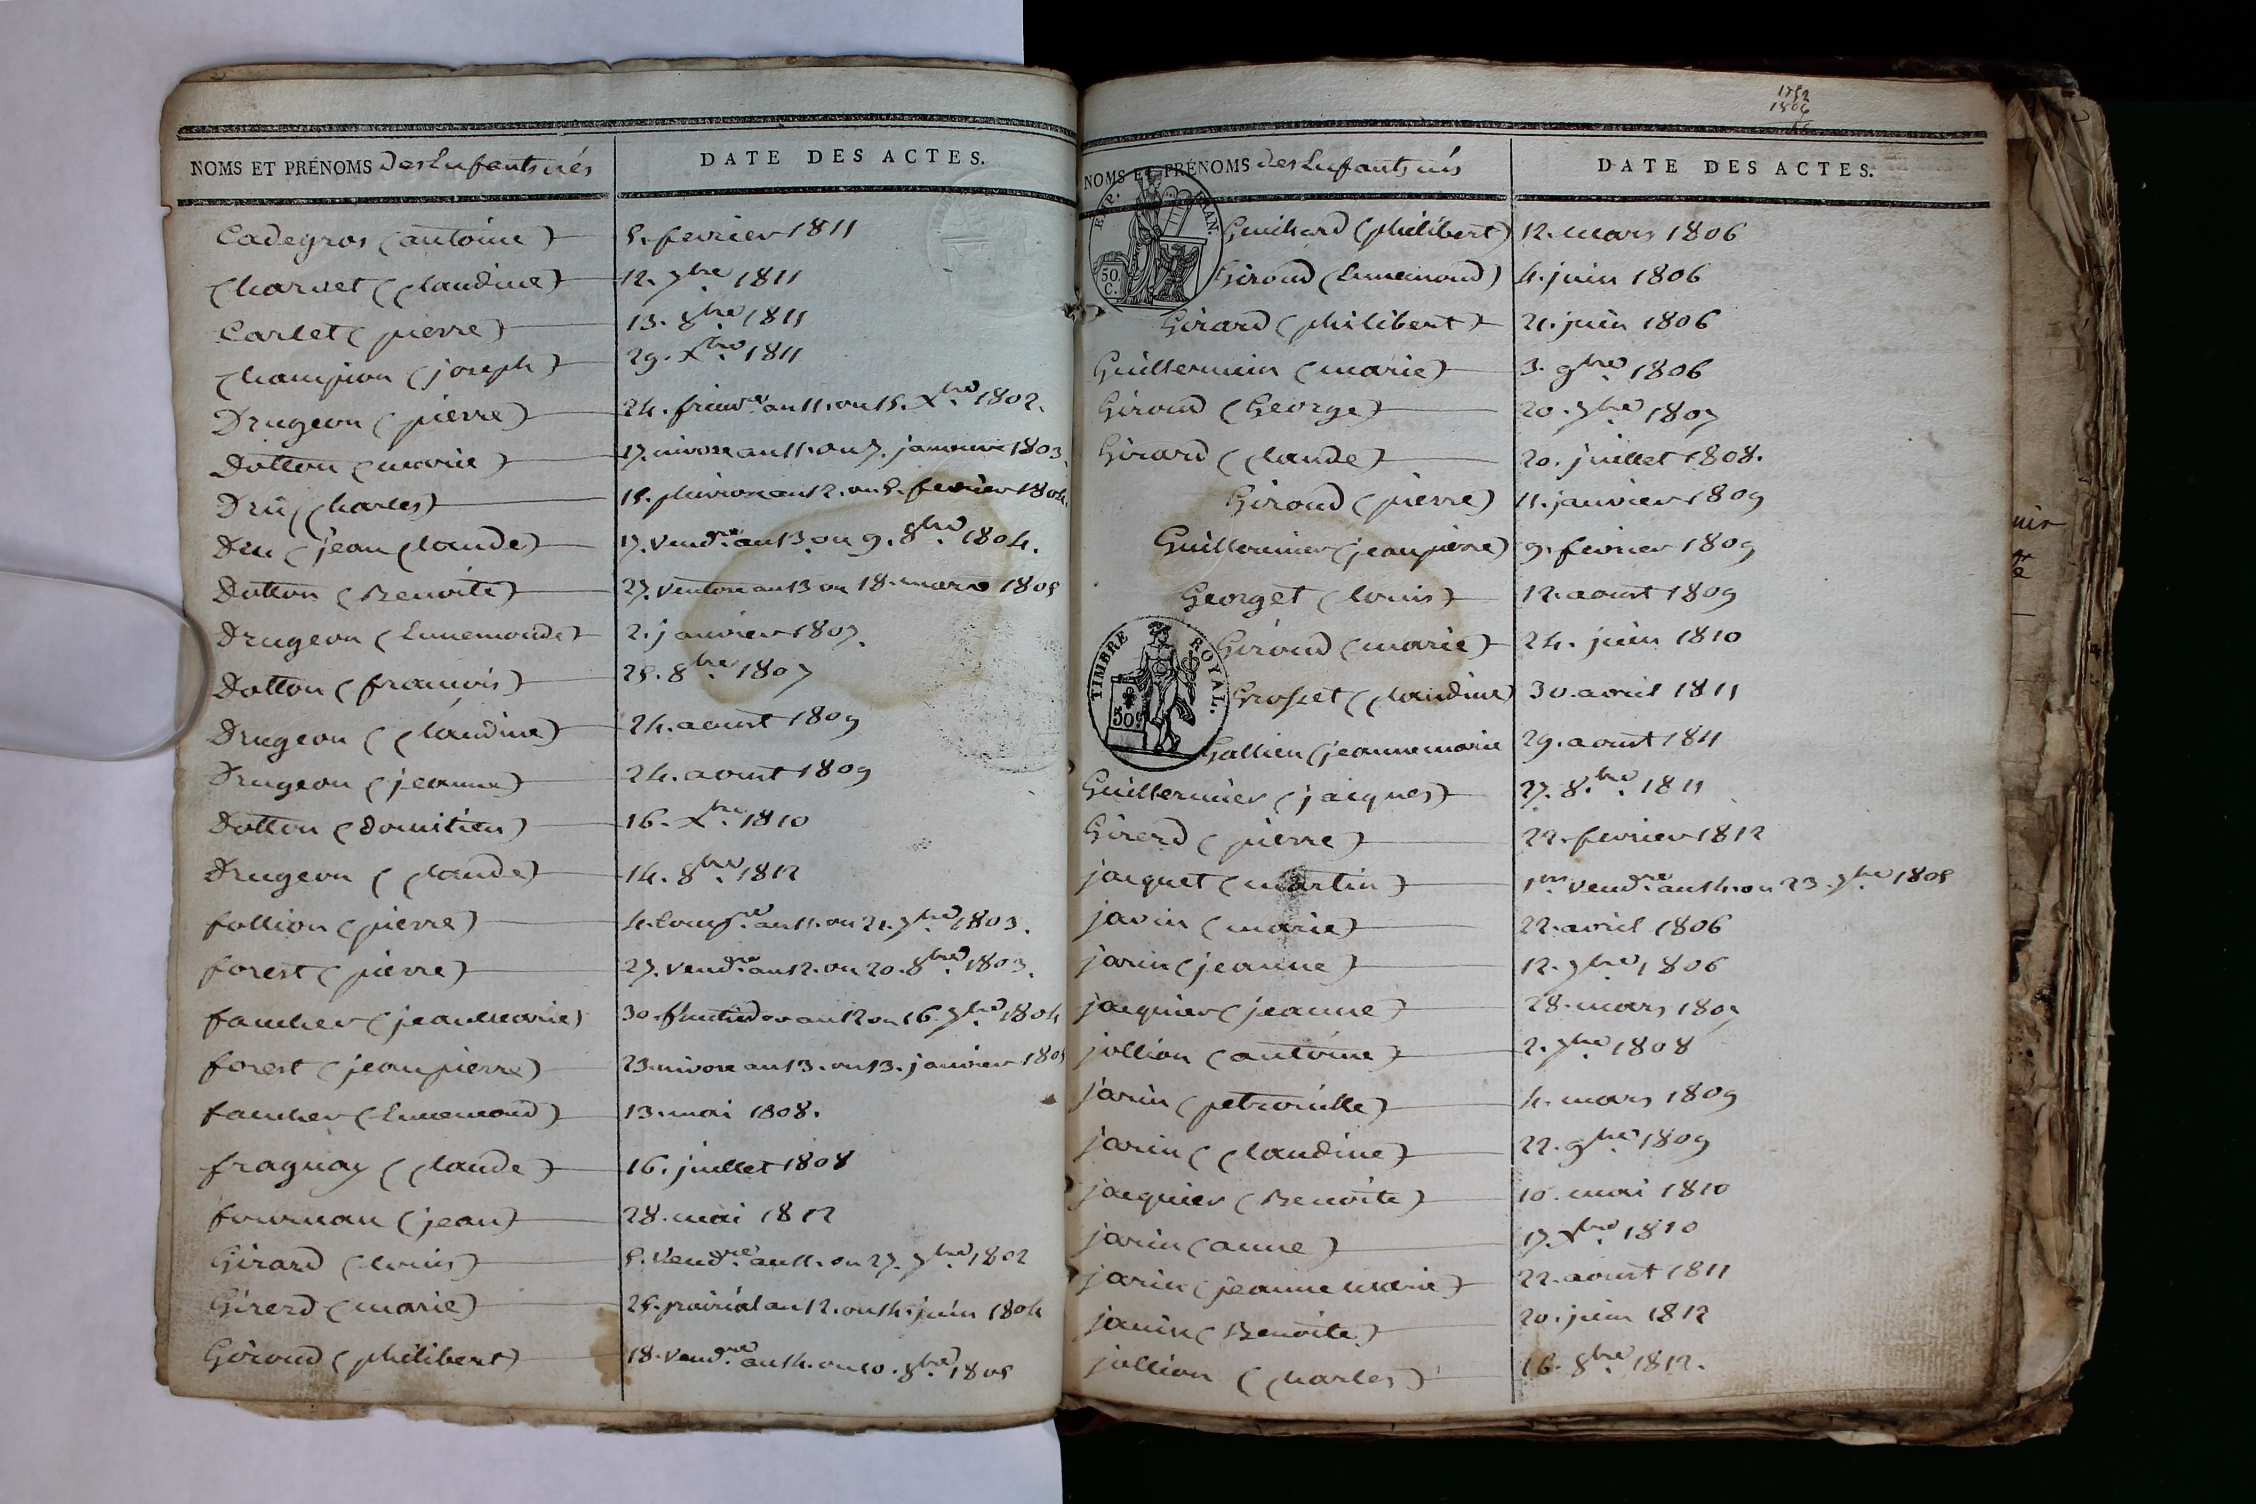 NOMS ET PRÉNOMS des Enfants nés
DATE DES ACTES.
Cadegros (antoine) 5. fevrier 1811
Charvet (Claudine) 12. 7bre 1811
Carlet (pierre) 13. 8bre 1811
Champion (joseph) 29. Xbre 1811
Drugeon (pierre) 24. frimre an 11. ou 15. Xbre 1802.
Dotton (marie) 17. nivose an 11. ou 7. janvier 1803.
Dru (Charles) 15. pluviose an 12. ou 5. fevrier 1804.
Dru (jean Claude) 17. vendre an 13. ou 9. 8bre 1804.
Dotton (Benoite) 27. ventose an 13 ou 18. mars 1805
Drugeon (Ennemonde) 2. janvier 1807.
Dotton (francois) 25. 8bre 1807
Drugeon (Claudine) 24. aoust 1809
Drugeon (jeanne) 24. aoust 1809
Dotton (Domitien) 16. Xbre 1810
Drugeon (Claude) 14. 8bre 1812
follion (pierre) 4. compre an 11. ou 21. 7bre 1803.
forest (pierre) 27. vendre an 12. ou 20. 8bre 1803.
faucher (jeanmarie) 30. fructidor an 12 ou 16 7bre 1804
forest (jean pierre) 23. nivose an 13. ou 13. janvier 1805
faucher (Ennemond) 13. mai 1808.
fraguay (Claude) 16. juillet 1808
fourneau (jean) 28. mai 1812
Girard (louis) 5. vendre an 11. ou 27. 7bre 1802
Girerd (marie) 25. prairial an 12. ou 14. juin 1804
Giroud (philibert) 18. vendre an 14. ou 10. 8bre 1805
1792
1806
NOMS ET PRÉNOMS des Enfants nés
DATE DES ACTES.
EMP. FRAN.
50
C.
Guichard (philibert) 12. mars 1806
Giroud (Ennemond) 4. juin 1806
Girard (philibert) 21. juin 1806
Guillermin (marie) 3. 9bre 1806
Giroud (George) 20. 7bre 1807
Girard (Claude) 20. juillet 1808.
Giroud (pierre) 11. janvier 1809
Guillermier (jean pierre) 9. fevrier 1809
Georget (louis) 12. aoust 1809
TIMBRE ROYAL.
50c
Giroud (marie) 24. juin 1810
Grosset (Claudine) 30. avril 1811
Gallien (jeanne marie 29. aoust 1811
Guillermier (jacques) 27. 8bre 1811
Girerd (pierre) 22. fevrier 1812
jacquet (martin) 1er vendre an 14. ou 23. 7bre 1805
janin (marie) 22. avril 1806
jarin (jeanne) 12. 7bre 1806
jacquier (jeanne) 28. mars 1807
jollion (antoine) 2. 7bre 1808
jarin (petronille) 4. mars 1809
jarin (Claudine) 22. 9bre 1809
jacquier (Benoite) 10. mai 1810
jarin (anne) 17. Xbre 1810
jarin (jeanne marie) 22. aoust 1811
janin (Benoite) 20. juin 1812
jollion (Charles) 16. 8bre 1812.